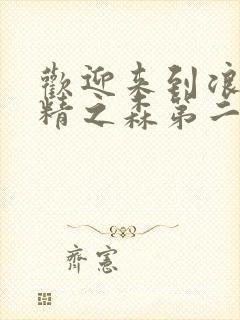 歡迎来到浪
精之森第二
齊憲